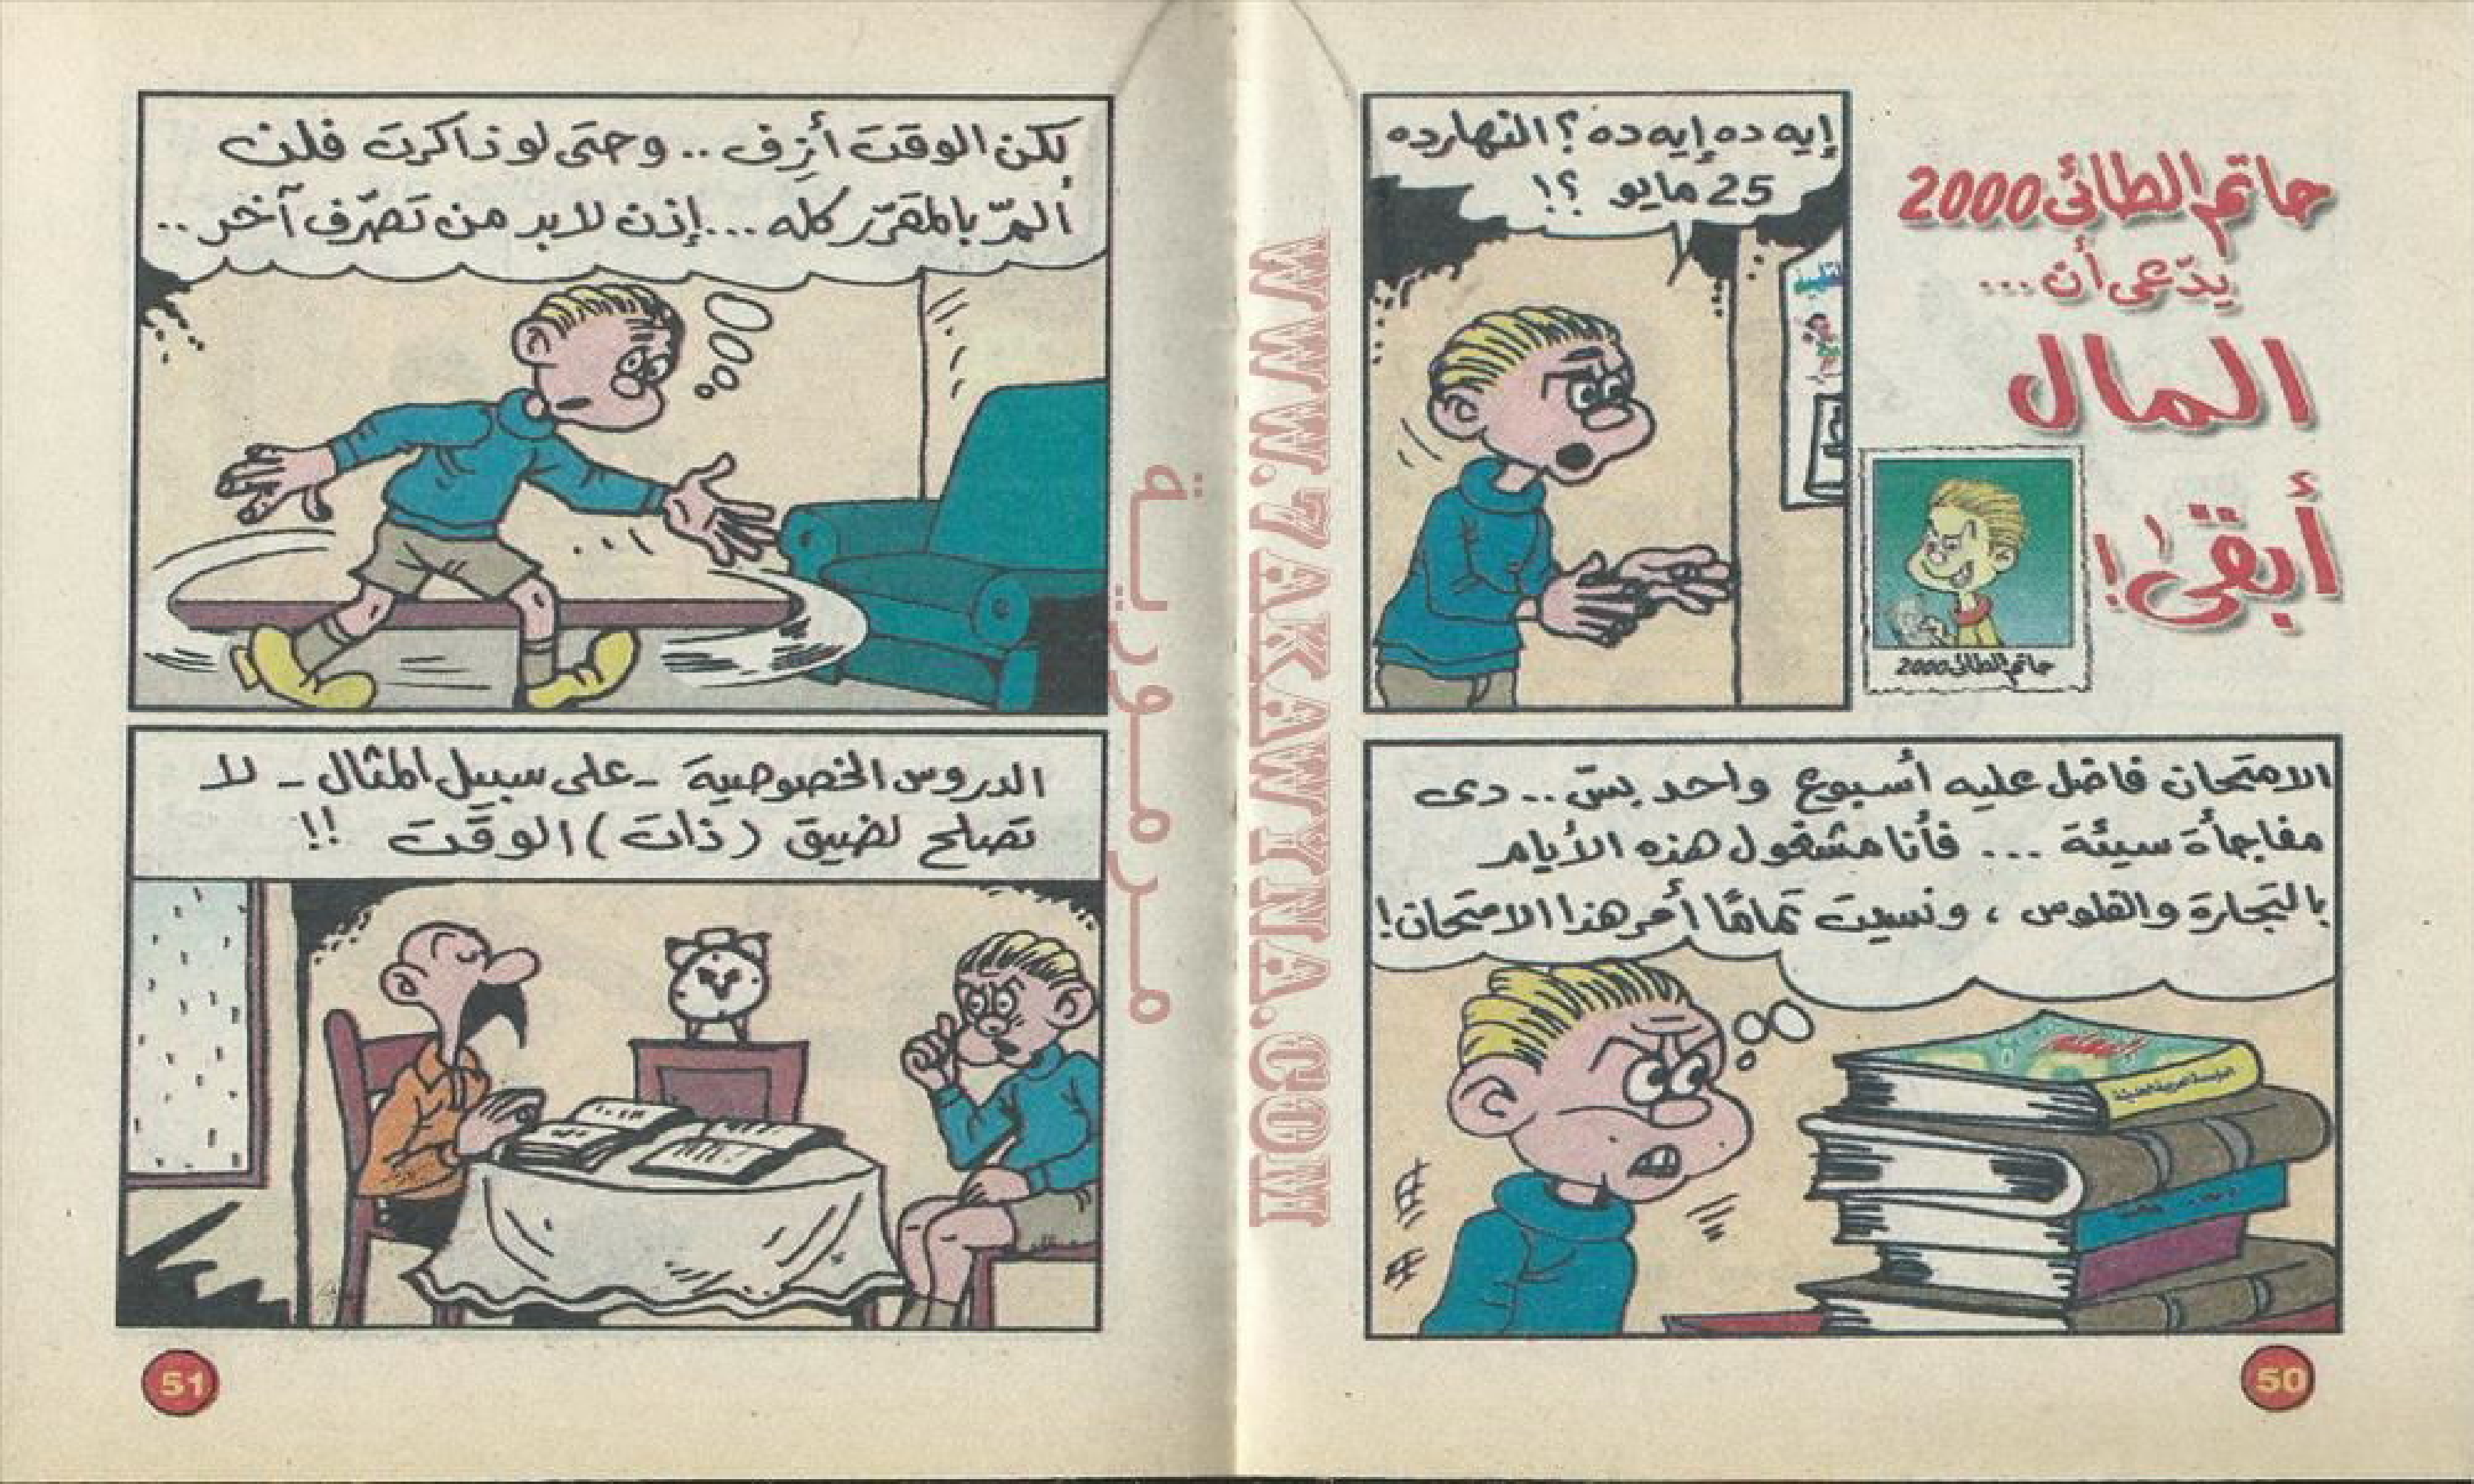 حاتم الطائى 2000
يدّعى أن ...
المال
أبقى!
حاتم الطائى 2000
إيه ده إيه ده؟ النهارده
25 مايو ؟!
الامتحان فاضل عليه أسبوع واحد بسّ.. دى
مفاجأة سيئة ... فأنا مشغول هذه الأيام
بالتجارة والفلوس ، ونسيت تمامًا أمر هذا الامتحان!
المؤسسة العربية الحديثة
50
لكن الوقت أزِف .. وحتى لو ذاكرت فلن
ألمّ بالمقرّر كله ... إذن لابد من تصرّف آخر ..
الدروس الخصوصية - على سبيل المثال - لا
تصلح لضيق (ذات) الوقت !!
51
WWW.7AKAWYINA.COM
مـرمـوريـة